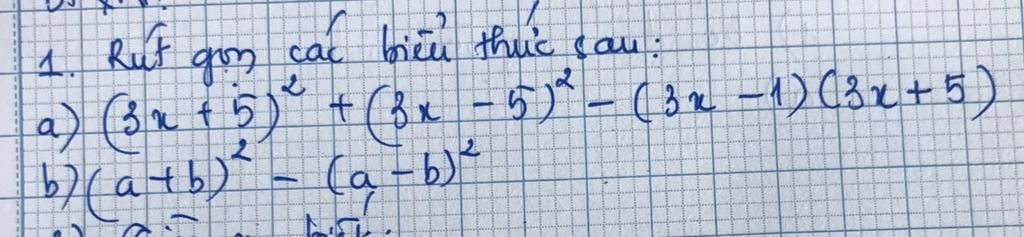 1. Rút gọn các biểu thức sau:
a) (3x + 5)² + (3x - 5)² - (3x - 1)(3x + 5)
b) (a + b)² - (a - b)²